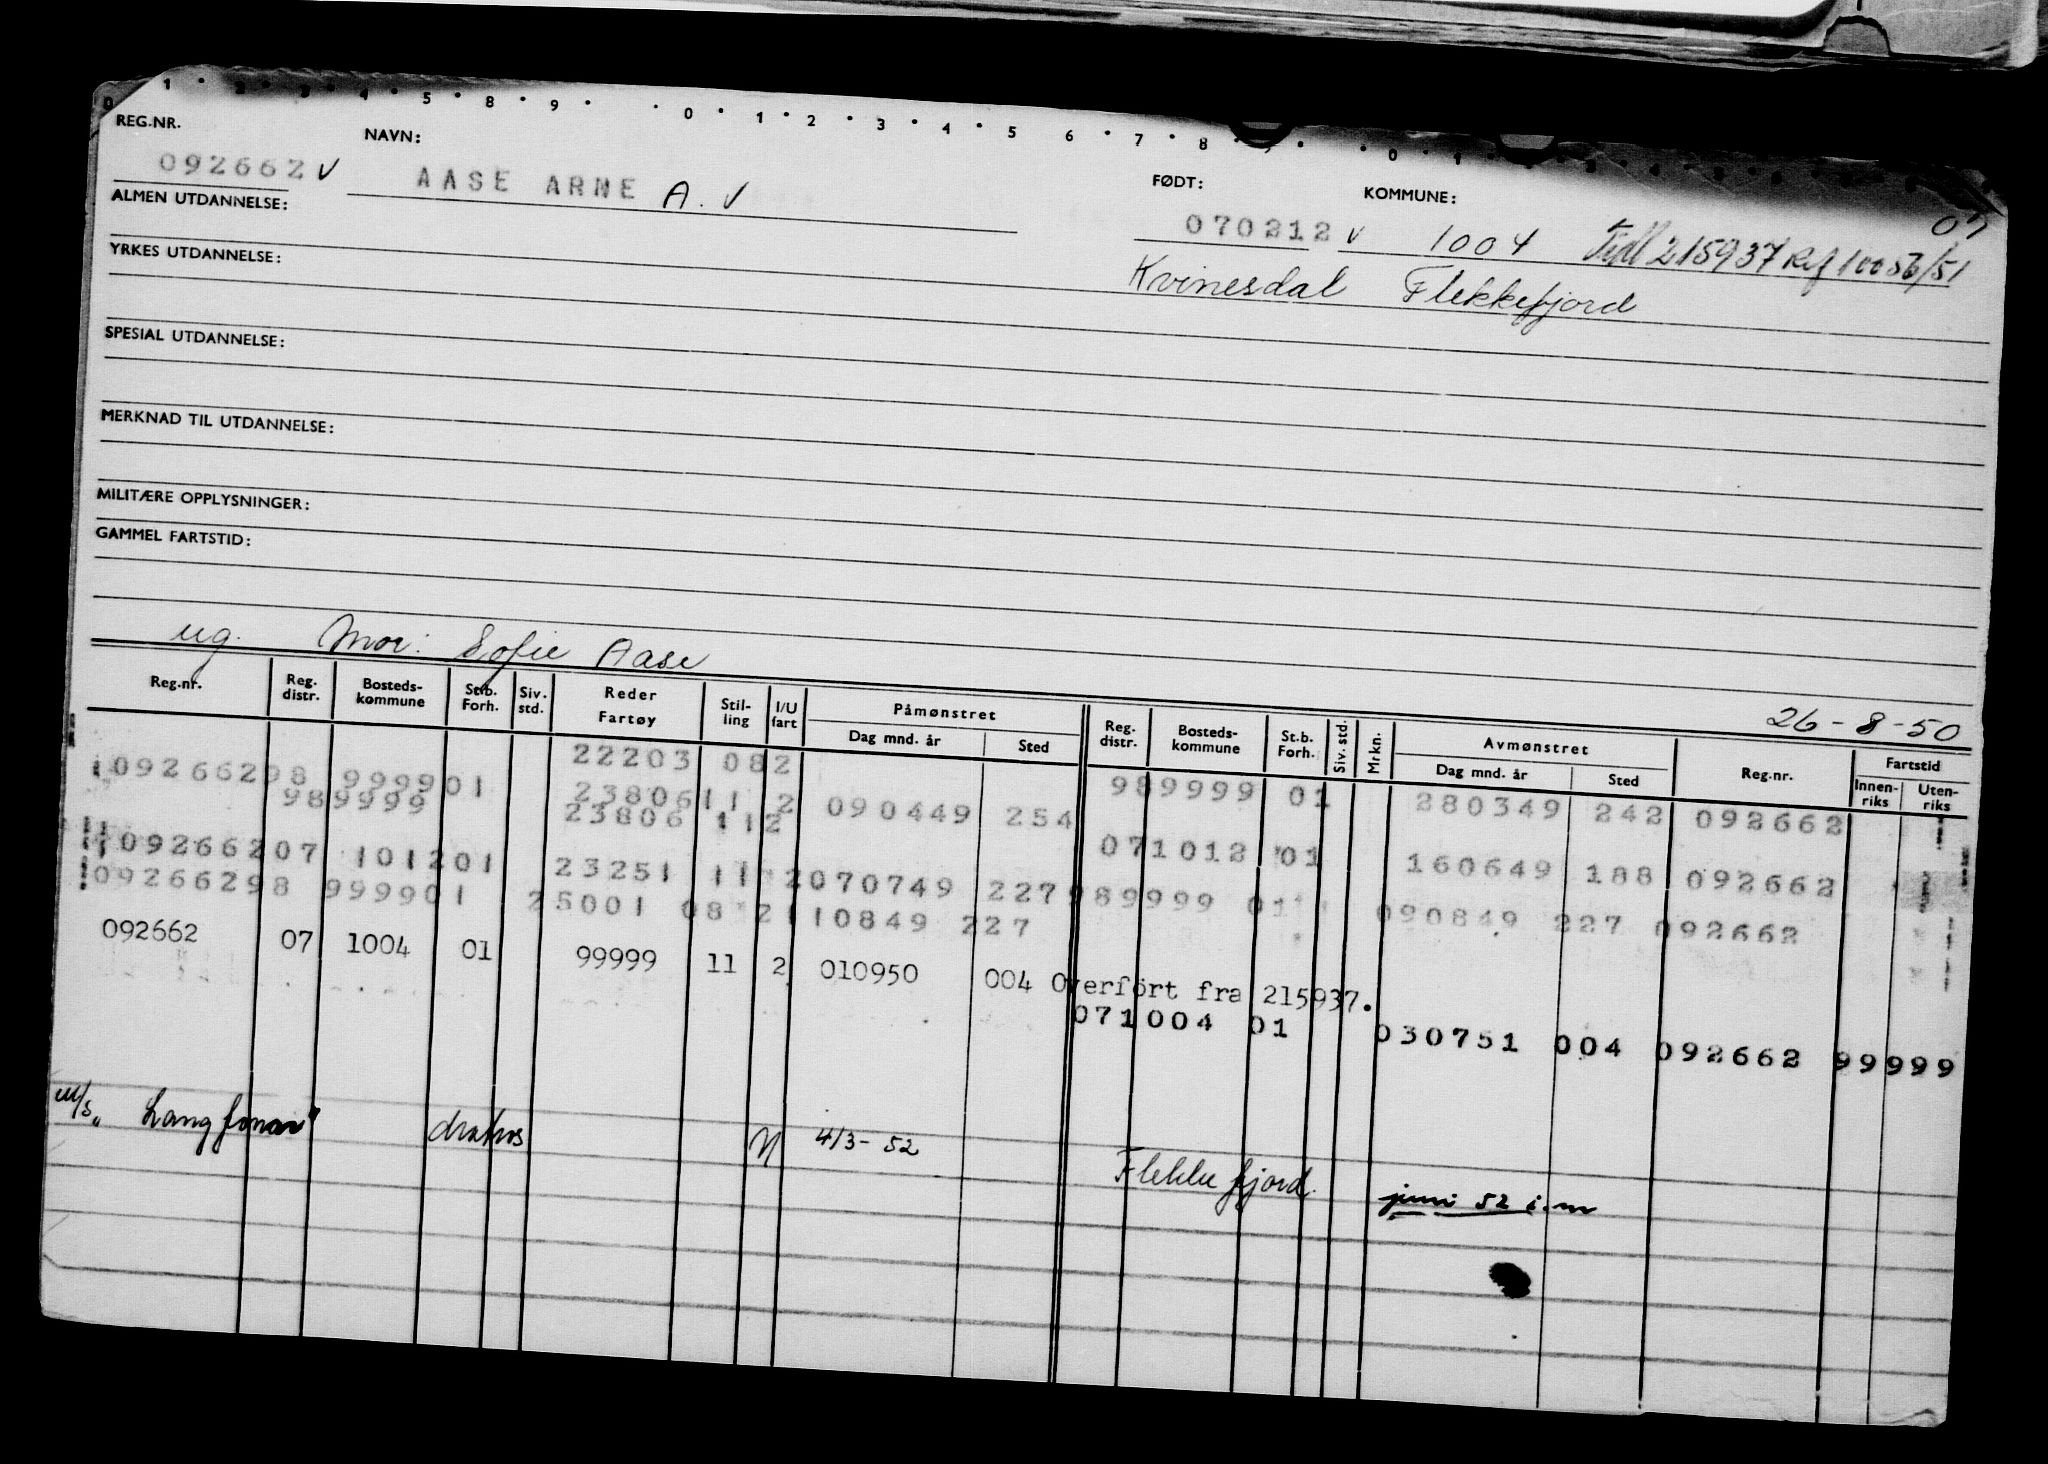 0 1 2 3 4 5 8 9 0 1 2 3 4 5 6 7 8 0 1
REG.NR. NAVN: FØDT: KOMMUNE: 07
092662 V AASE ARNE A. V 070212 V 1004 215937 Ref 10056/51
ALMEN UTDANNELSE: Kvinesdal Flekkefjord
YRKES UTDANNELSE:
SPESIAL UTDANNELSE:
MERKNAD TIL UTDANNELSE:
MILITÆRE OPPLYSNINGER:
GAMMEL FARTSTID:
ug. Mor: Sofie Aase
26-8-50
Reg.nr. Reg. distr. Bosteds-kommune St.b. Forh. Siv. std. Reder Fartøy Stil-ling I/U fart Påmønstret Dag mnd. år Sted Reg. distr. Bosteds-kommune St.b. Forh. Siv. std. Mrkn. Avmønstret Dag mnd. år Sted Reg.nr. Fartstid Innen-riks Uten-riks
22203 082
09266298 999901 23806 11 2 090449 254 989999 01 280349 242 092662
989999 23806 112
09266207 101201 23251 11 2070749 227 071012 01 160649 188 092662
09266298 999901 25001 08 2110849 227 989999 01 090849 227 092662
092662 07 1004 01 99999 11 2 010950 004 Overfört fra 215937.
071004 01 030751 004 092662 99999
m/s "Langfonn" N 4/3-52 Flekkefjord. juni 52 i.m